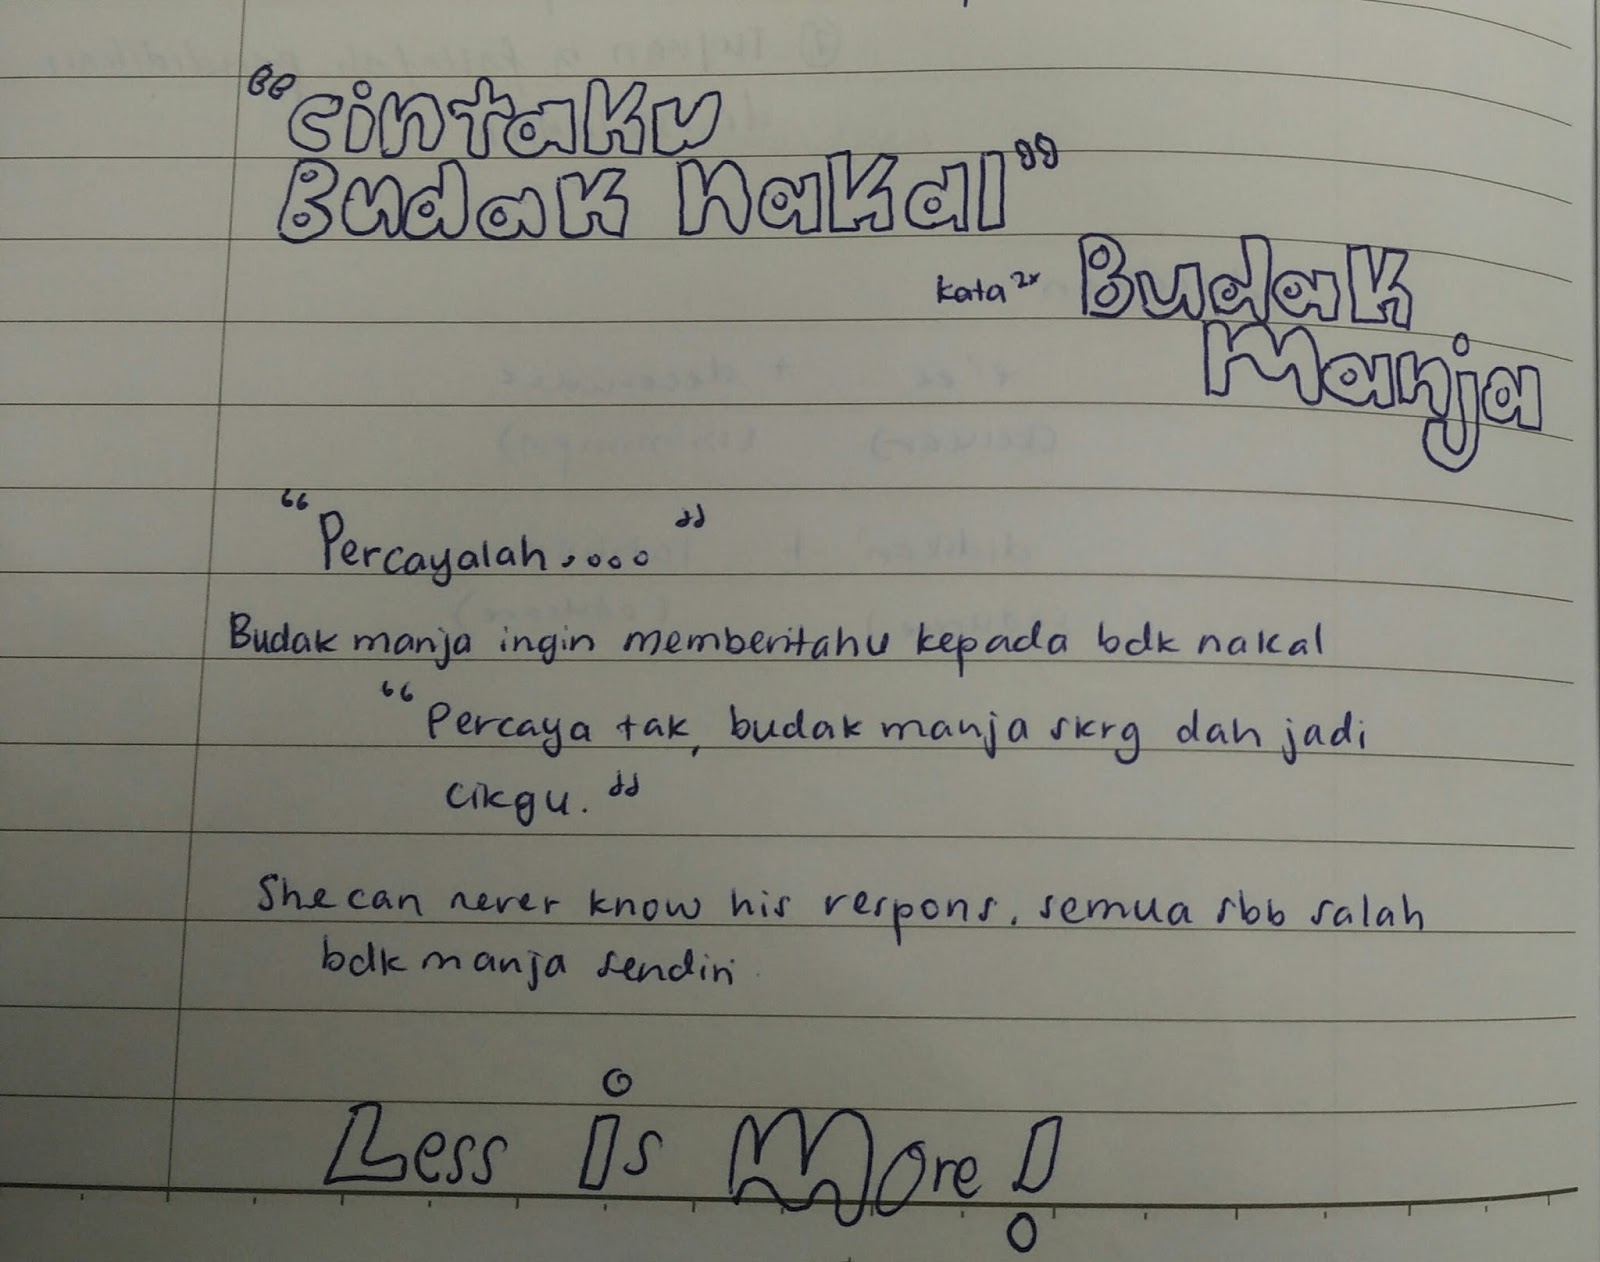 "Cintaku
Budak Nakal"
kata²ˣ Budak
Manja
"Percayalah...."
Budak manja ingin memberitahu kepada bdk nakal
"Percaya tak, budak manja skrg dah jadi
cikgu."
She can never know his respons. semua sbb salah
bdk manja sendiri.
Less is More!